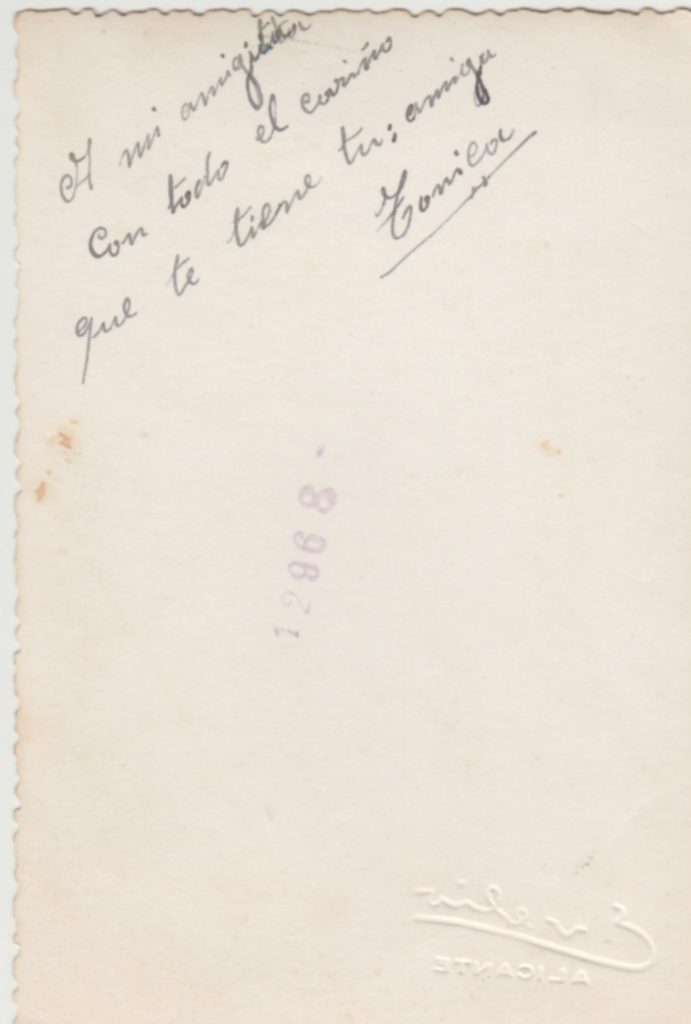 A mi amiguita
con todo el cariño
que te tiene tu; amiga
Tonica
12968
Evelio
ALICANTE